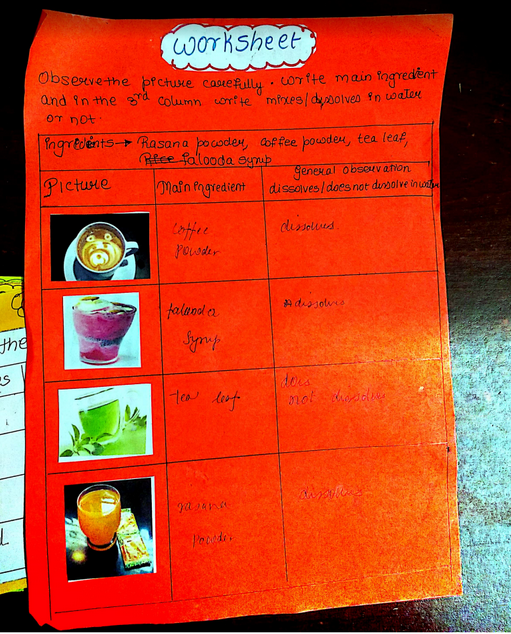 Worksheet
Observe the picture carefully. write main ingredient
and in the 3rd column write mixes/dissolves in water
or not.
ingredients → Rasana powder, coffee powder, tea leaf,
falooda syrup
Picture
Main ingredient
General observation
dissolves/does not dissolve in water
coffee
Powder
dissolves.
falooda
Syrup
dissolves
tea leaf
does
not dissolve
rasana
Powder
dissolves
the
s
d